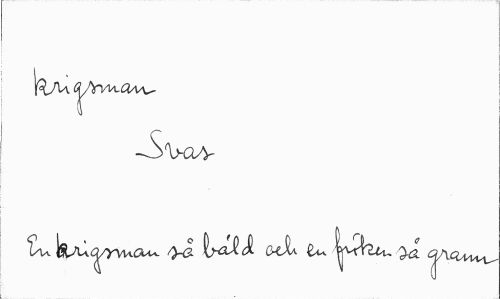 krigsman
Svas
En krigsman så båld och en fröken så grann